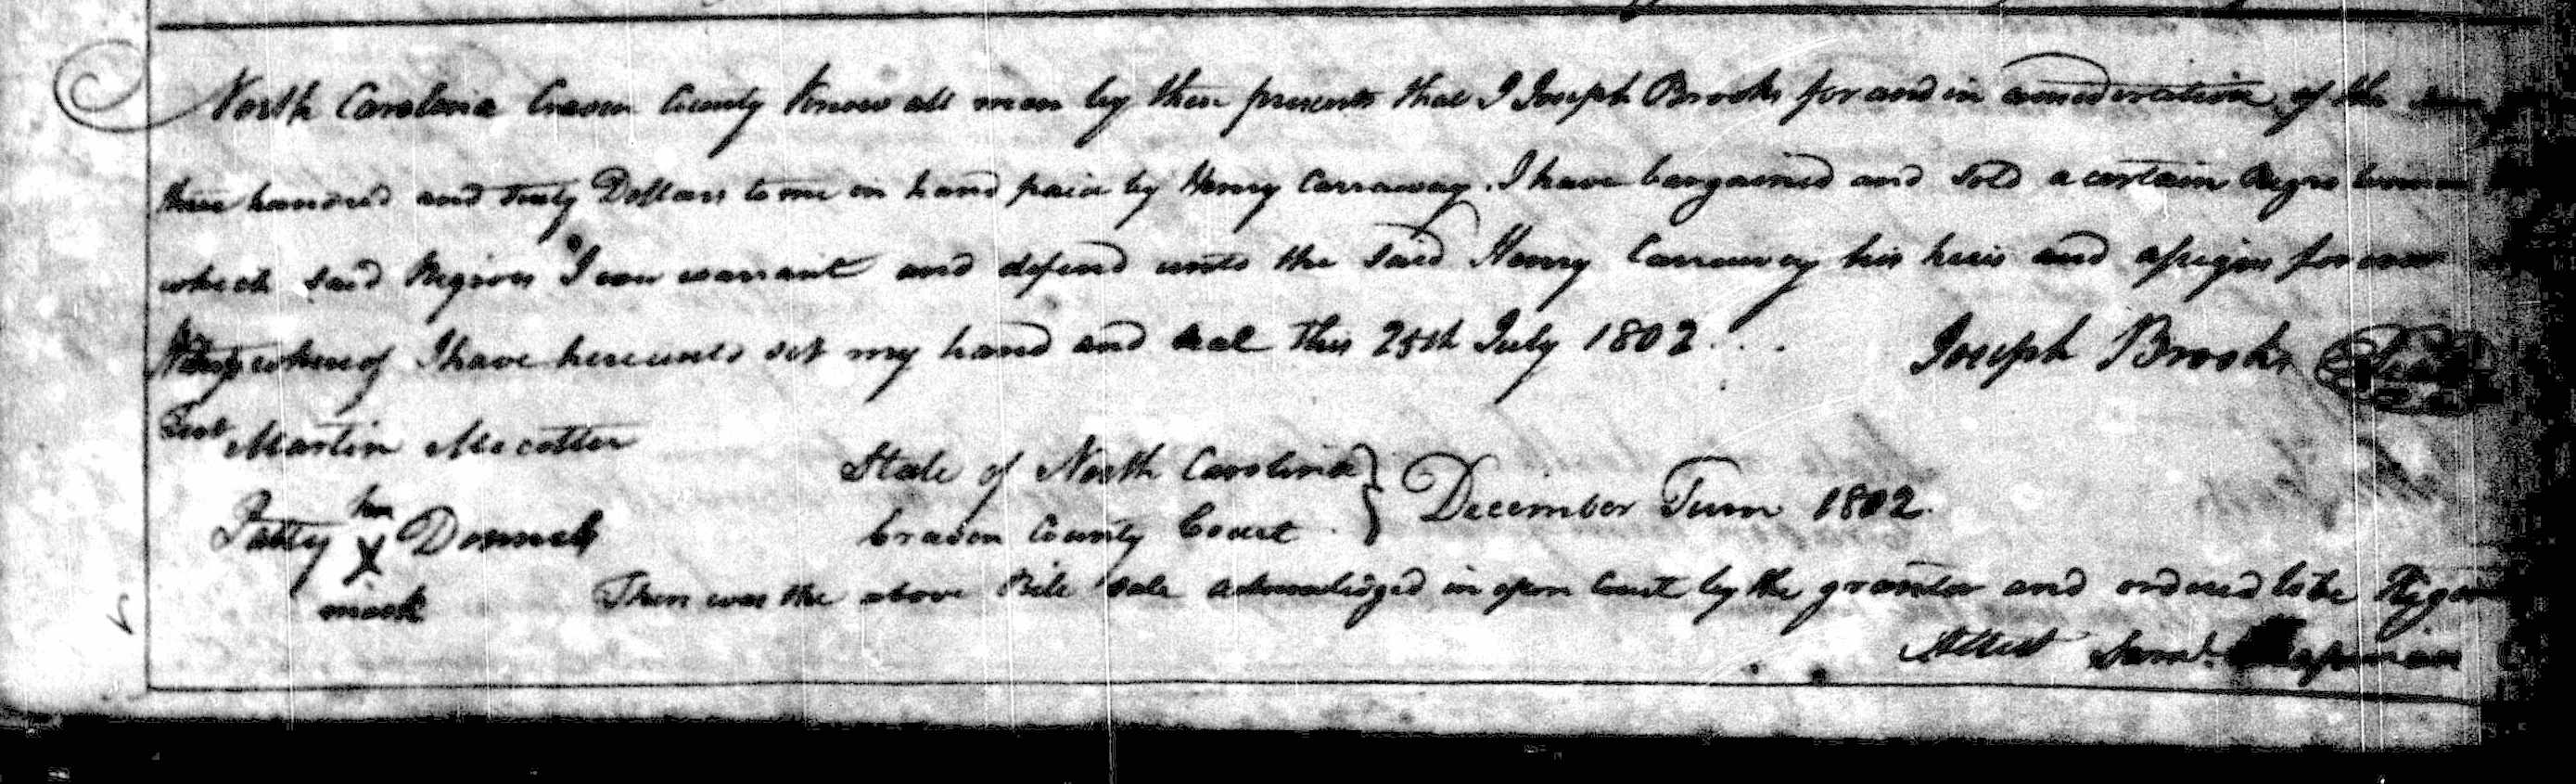 North Carolina Craven County Know all men by these presents that I Joseph Brooks for and in consideration of the sum
three hundred and Twenty Dollars to me in hand paid by Henry Carraway. I have bargained and sold a certain Negro woman
which said Negroes I can warrant and defend unto the said Henry Carraway his heirs and assigns forever
whereof I have hereunto set my hand and seal this 25th July 1802 . . . Joseph Brooks Seal
Test Martin Mccotter
Patty her X mark Donnel
State of North Carolina } December Term 1802.
Craven County Court
Then was the above Bile Sale acknowledged in open Court by the grantor and ordered to be
Attest Saml. Chapman